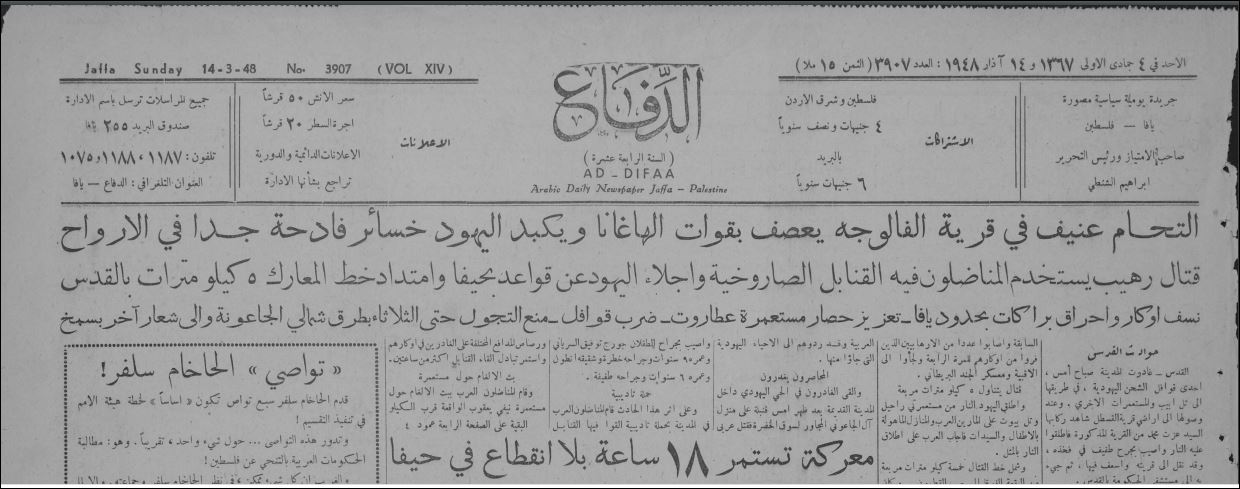 Jaffa Sunday 14-3-48 No. 3907 (VOL XIV)
الاحد في ٤ جمادى الاولى ١٣٦٧ و ١٤ آذار ١٩٤٨ : العدد ٣٩٠٧ (الثمن ١٥ ملا)
جريدة يومية سياسية مصورة
يافا — فلسطين
صاحب الامتياز ورئيس التحرير
ابراهيم الشنطي
الاشتراكات
فلسطين وشرق الاردن
٤ جنيهات ونصف سنوياً
بالبريد
٦ جنيهات سنوياً
الدفاع
(السنة الرابعة عشرة)
AD-DIFAA
Arabic Daily Newspaper Jaffa – Palestine
الاعلانات
سعر الانش ٥٠ قرشاً
اجرة السطر ٢٠ قرشاً
الاعلانات الدائمية والدورية
تراجع بشأنها الادارة
جميع المراسلات ترسل باسم الادارة
صندوق البريد ٢٥٥ يافا
تلفون : ١١٨٧، ١١٨٨ و ١٠٧٥
العنوان التلغرافي : الدفاع — يافا
التحام عنيف في قرية الفالوجه يعصف بقوات الهاغانا ويكبد اليهود خسائر فادحة جدا في الارواح
قتال رهيب يستخدم المناضلون فيه القنابل الصاروخية واجلاء اليهود عن قواعد بحيفا وامتداد خط المعارك ٥ كيلو مترات بالقدس
نسف اوكار واحراق براكات بحدود يافا ـ تعزيز حصار مستعمرة عطاروت ـ ضرب قوافل ـ منع التجول حتى الثلاثاء بطرق شمالي الجاعونة والى شعار آخر بسمخ
حوادث القدس
القدس ـ غادرت المدينة صباح أمس ،
احدى قوافل الشحن اليهودية ، في طريقها
الى تل ابيب والمستعمرات الاخرى . وعند
وصولها الى اراضي قرية القسطل شاهد ركابها
السيد عزت محمد من القرية المذكورة فاطلقوا
عليه النار واصيب بجراح طفيف في فخذه ،
وقد نقل الى قريته واسعف فيها ، ثم جيء
به الى مستشفى الحكومة بالقدس .
السابقة واصابوا عددا من الارهابيين الذين
فروا من اوكارهم للمرة الرابعة ولجأوا الى
الاقبية ومعسكر الجند البريطاني .
قتال يتناول ٥ كيلو مترات مربعة
واطلق اليهود النار من مستعمرتي راحيل
وتل بيوت على المارين العرب والمنازل المأهولة
بالاطفال والسيدات فأجاب العرب على اطلاق
النار بالمثل .
وشمل خط القتال خمسة كيلو مترات مربعة
العربية وقد ردوهم الى الاحياء اليهودية
التي جاءوا منها .
المحاصرون يغدرون
والقى الغادرون في الحي اليهودي داخل
المدينة القديمة بعد ظهر امس قنبلة على منزل
آل الجاعوني المجاور لسوق الخضرة فقتل عربي
واصيب بجراح الطفلان جورج توفيق السرياني
وعمره ٩ سنوات وجراحه خطرة وشقيقه انطون
وعمره ٦ سنوات وجراحه طفيفة .
حملة تأديبية
وعلى اثر هذا الحادث قام المناضلون العرب
في المدينة بحملة تأديبية القوا فيها القنابل
ورصاص المدافع المختلفة على الغادرين في اوكارهم
واستمر تبادل القاء القنابل اكثر من ساعتين .
بث الالغام حول مستعمرة
وقام المناضلون العرب ببث الالغام حول
مستعمرة نيفي يعقوب الواقعة قرب الكيلو
البقية على الصفحة الرابعة عمود ٤
معركة تستمر ١٨ ساعة بلا انقطاع في حيفا
« تواصي » الحاخام سلفر !
قدم الحاخام سلفر سبع تواص تكون « اساساً » لخطة هيئة الامم
في تنفيذ التقسيم !
وتدور هذه التواصي ... حول شيء واحد ، تقريباً . وهو : مطالبة
الحكومات العربية بالتنحي عن فلسطين !